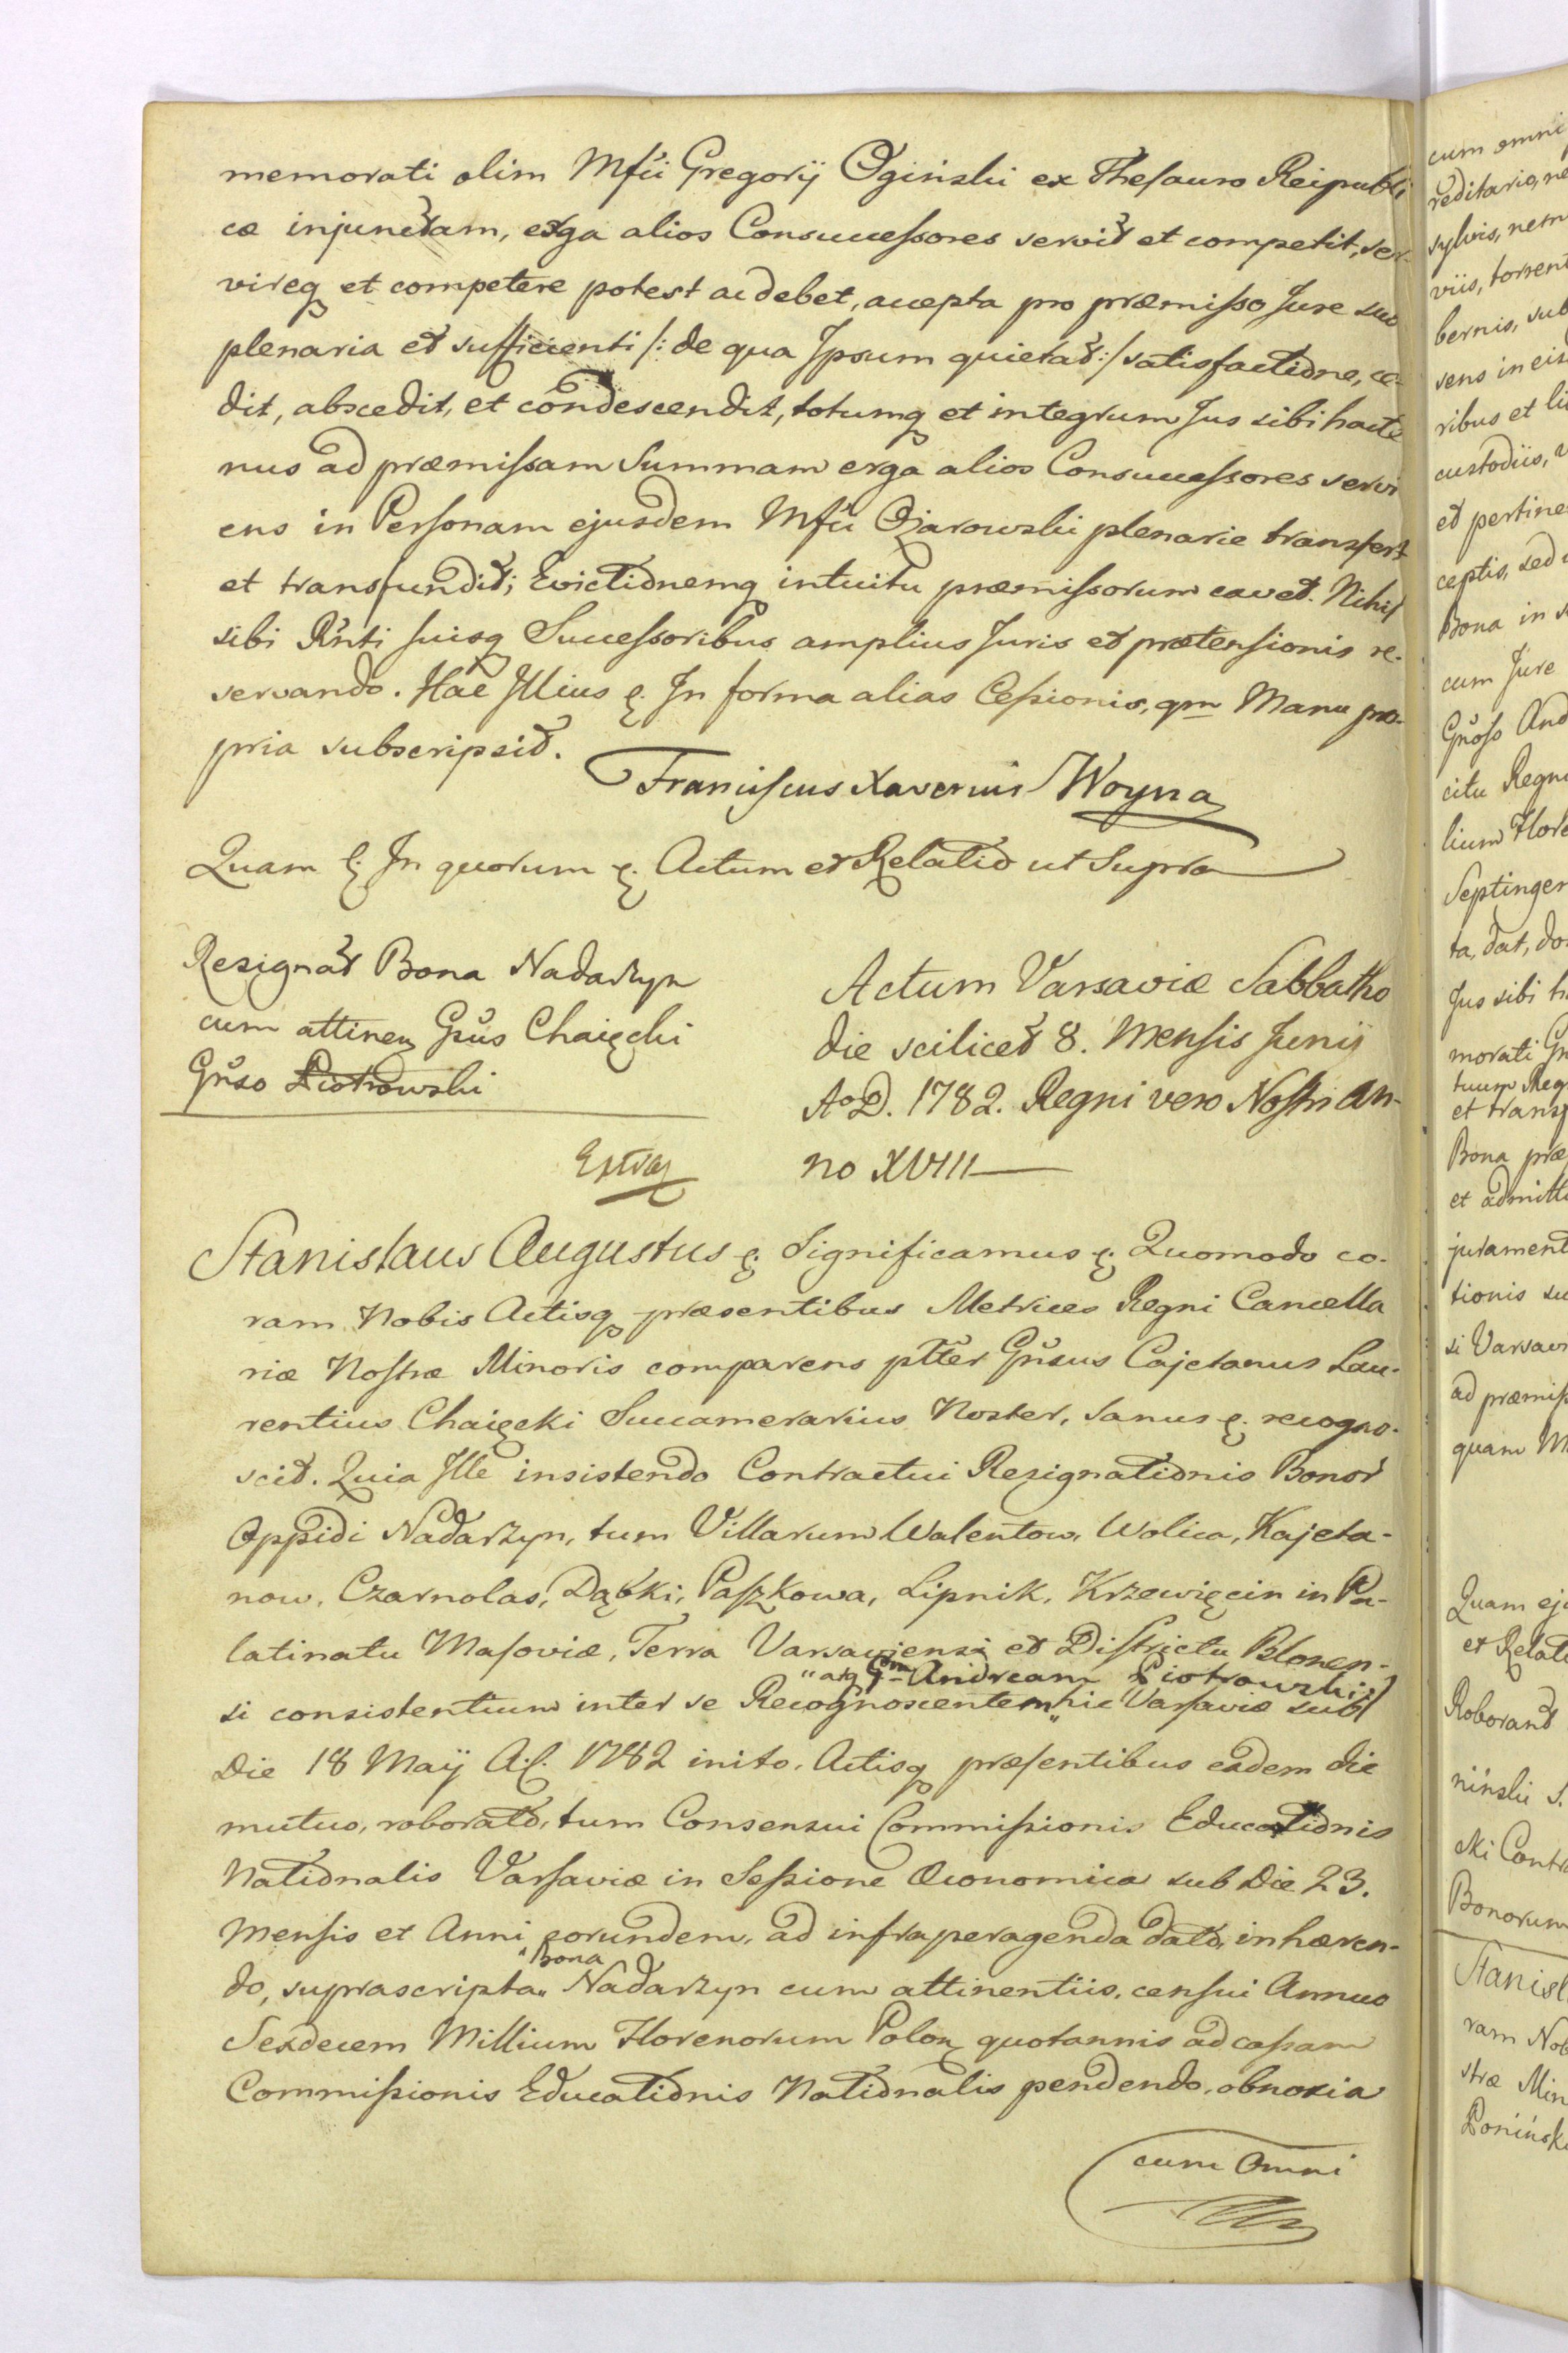 memorati olim Mfci Gregorÿ Oginski ex Thesauro Reipubli
cæ injunctam, erga alios Consuccessores servit et competit, ser-
vireq et competere potest ac debet, accepta pro præmisso Jure suo
plenaria et sufficienti /: de qua Ipsum quietat :/ satisfactione, ce-
dit, abscedit, et condescendit, totumq et integrum Jus sibi hacte
nus ad præmissam Summam erga alios Consuccessores servi
ens in Personam ejusdem Mfci Ożarowski plenarie transfert
et transfundit; Evictionemq intuitu præmissorum cavet. Nihil
sibi Rnti suisq Successoribus amplius Juris et prætensionis re-
servando. Hac Illius &. In forma alias Cessionis, qm Manu pro-
pria subscripsit.
Franciscus Xaverius Woyna
Quam &. In quorum &. Actum et Relatio ut Supra
Resignat Bona Nadarzyn
cum attinen Gsus Chaięcki
Gnso Piotrowski
Extrad
Actum Varsaviæ Sabbatho
die scilicet 8. Mensis Junÿ
Ao D. 1782. Regni vero Nostri An-
no XVIII
Stanislaus Augustus &. Significamus &. Quomodo co-
ram Nobis Actisq præsentibus Metrices Regni Cancella
riæ Nostræ Minoris comparens ptter Gnsus Cajetanus Lau-
rentius Chaięcki Succamerarius Noster, sanus &. recogno-
scit. Quia Ille insistendo Contractui Resignationis Bonor
Oppidi Nadarzyn, tum Villarum Walentow, Wolica, Kajeta-
now, Czarnolas, Dąbki, Paszkowa, Lipnik, Krzewięcin in Pa-
latinatu Masoviæ, Terra Varsaviensi et Districtu Blonen-
"atq Gm Andream Piotrowski
si consistentium inter se Recognoscentem" hic Varsaviæ sub
Die 18 Maÿ A. C. 1782 inito, Actisq præsentibus eadem die
mutuo, roborato, tum Consensui Commissionis Educationis
Nationalis Varsaviæ in Sessione Œconomica sub Die 23.
Mensis et Anni eorundem, ad infra peragenda dato, inhæren-
"Bona
do, suprascripta" Nadarzyn cum attinentiis, censui Annuo
Sexdecem Millium Florenorum Polon quotannis ad cassam
Commissionis Educationis Nationalis pendendo, obnoxia
cum Omni
cum omni
reditario, ne
sylvis, nem
viis, torrent
bernis, sub
sens in eis
ribus et li
custodiis, v
et pertine
ceptis, sed
Bona in s
cum Jure
Gnoso And
citu Regn
lium Flore
Septingen
ta, dat, do
Jus sibi h
morati Gn
tuum Reg
et transf
Bona præ
et admitt
jurament
tionis su
si Varsav
ad præmiss
quam M
Quam ej
et Relati
Roborant
ninski S.
cki Contr
Bonorum
Stanisl
ram Nob
stræ Min
Poninsk